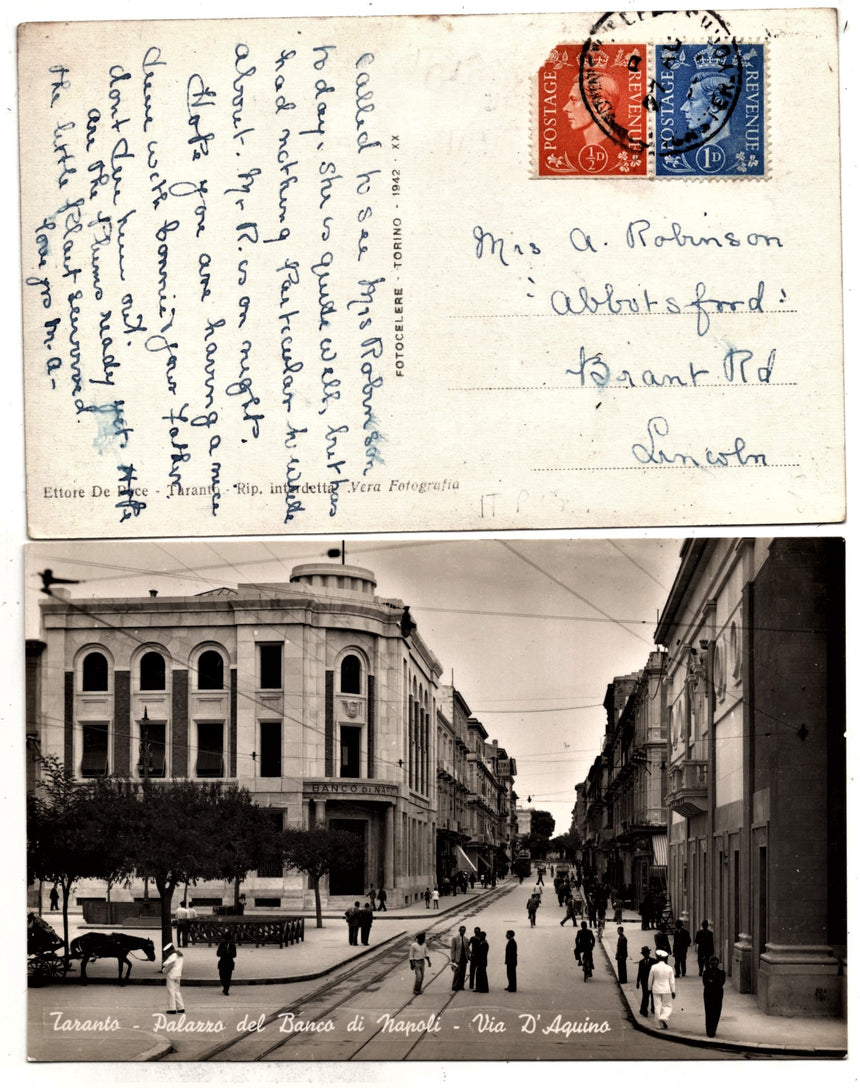 called to see Mrs Robinson
today. She is quite well, but has
had nothing Particular to write
about. Mr R. is on night.
Hope you are having a nice
time with Bonnie & your Father
dont tire him out.
are the Plums ready yet. Hope
the little Plant survived.
love yrs M. A-
FOTOCELERE · TORINO · 1942 · XX
Ettore De Pace - Taranto - Rip. interdetta Vera Fotografia
POSTAGE REVENUE
½D
POSTAGE REVENUE
1D
Mrs A. Robinson
'Abbotsford'
Brant Rd
Lincoln
BANCO DI NAPOLI
Taranto - Palazzo del Banco di Napoli - Via D'Aquino